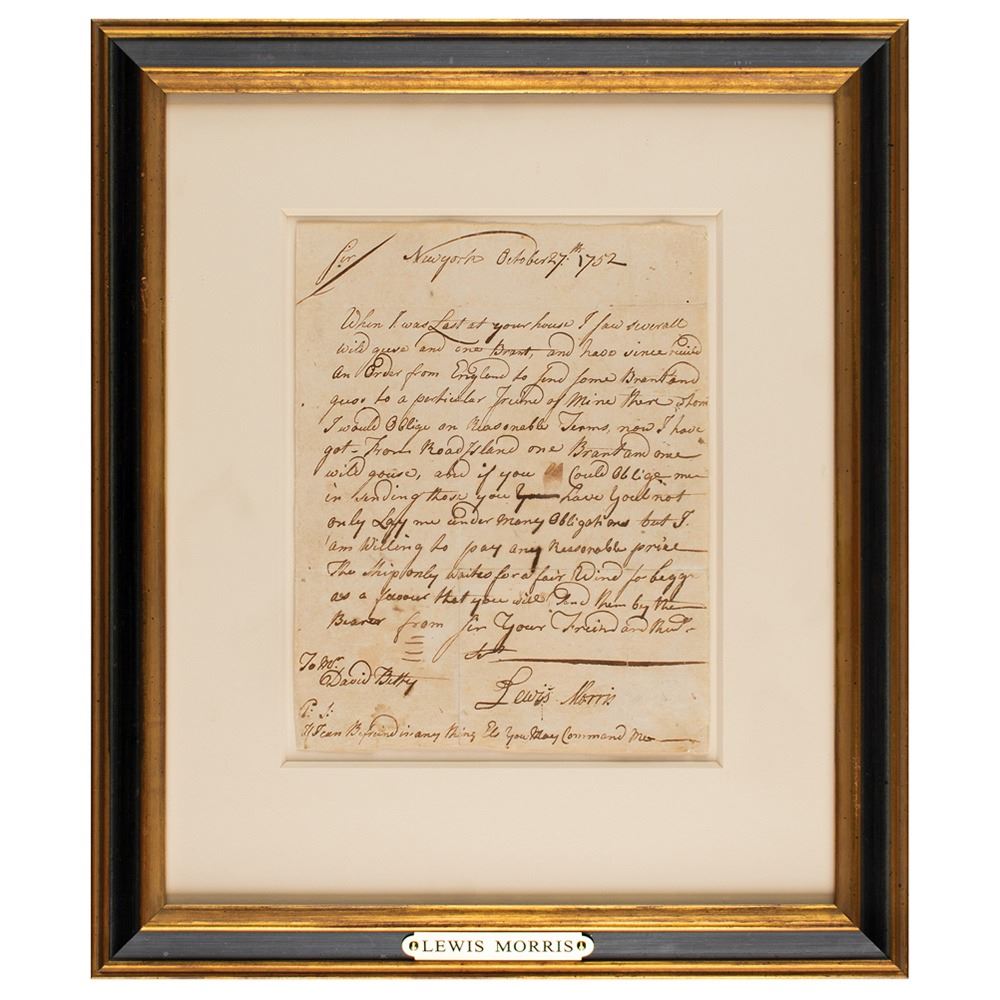 Sir Newyork October 27.th 1752
When I was Last at your house I saw severall
wild geese and one Brant, and have since
An Order from England to send some Brant and
geese to a particular friend of Mine there whom
I would Oblige on Reasonable Terms, now I have
got From Road Island one Brant and one
wild goose, and if you Could Oblige me
in sending those you have Youl not
only Lay me under Many Obligations but I
am Willing to pay any Reasonable price
The Ship only waites for a fair Wind so begg
as a favour that you will Send them by the
Bearer from Sir Your Freind and
To Mr.
David
Lewis Morris
P: S:
If I can Be freind in any thing Els You May Command Me
LEWIS MORRIS